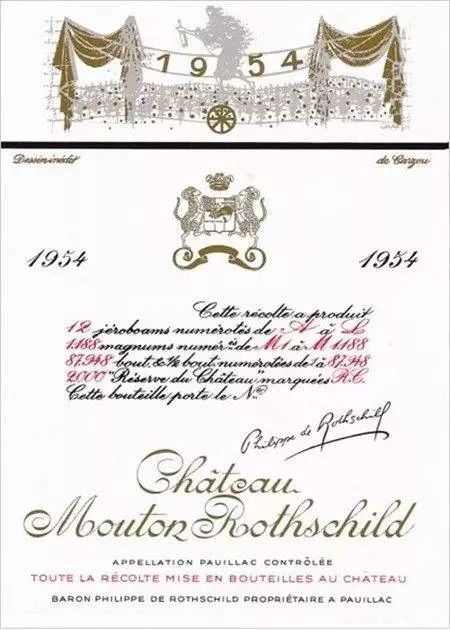 1954
Dessin inédit de Carzou
1954 1954
Cette récolte a produit
12 jéroboams numérotés de A à L
1.188 magnums numér.és de M1 à M 1188
87.948 bout. & ½ bout. numérotées de 1 à 87.948
2.000 "Réserve du Château" marquées R.C.
Cette bouteille porte le N.º
Philippe de Rothschild
Château
Mouton Rothschild
APPELLATION PAUILLAC CONTRÔLÉE
TOUTE LA RÉCOLTE MISE EN BOUTEILLES AU CHÂTEAU
BARON PHILIPPE DE ROTHSCHILD PROPRIÉTAIRE A PAUILLAC